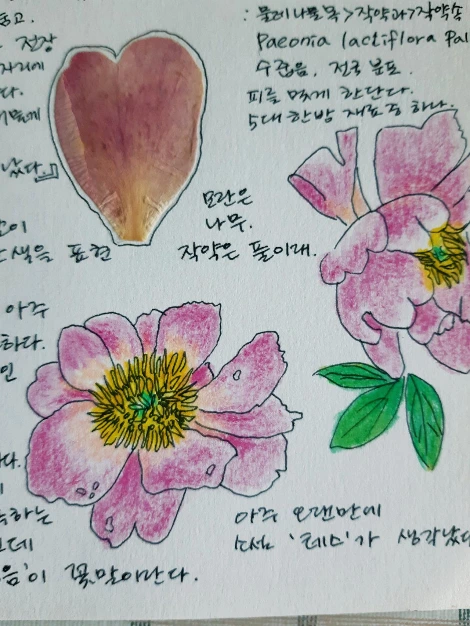 : 물레나물목>작약과>작약속
Paeonia lactiflora Pal
수줍음. 전국 분포.
피를 맑게 한단다.
5대 한방 재료 중 하나.
전장
다.
났다.
모란은
나무.
작약은 풀이래.
색을 표현
아주
하다.
인
다.
하는
데
음'이 꽃말이란다.
아주 오랜만에
소설 '테스'가 생각났다